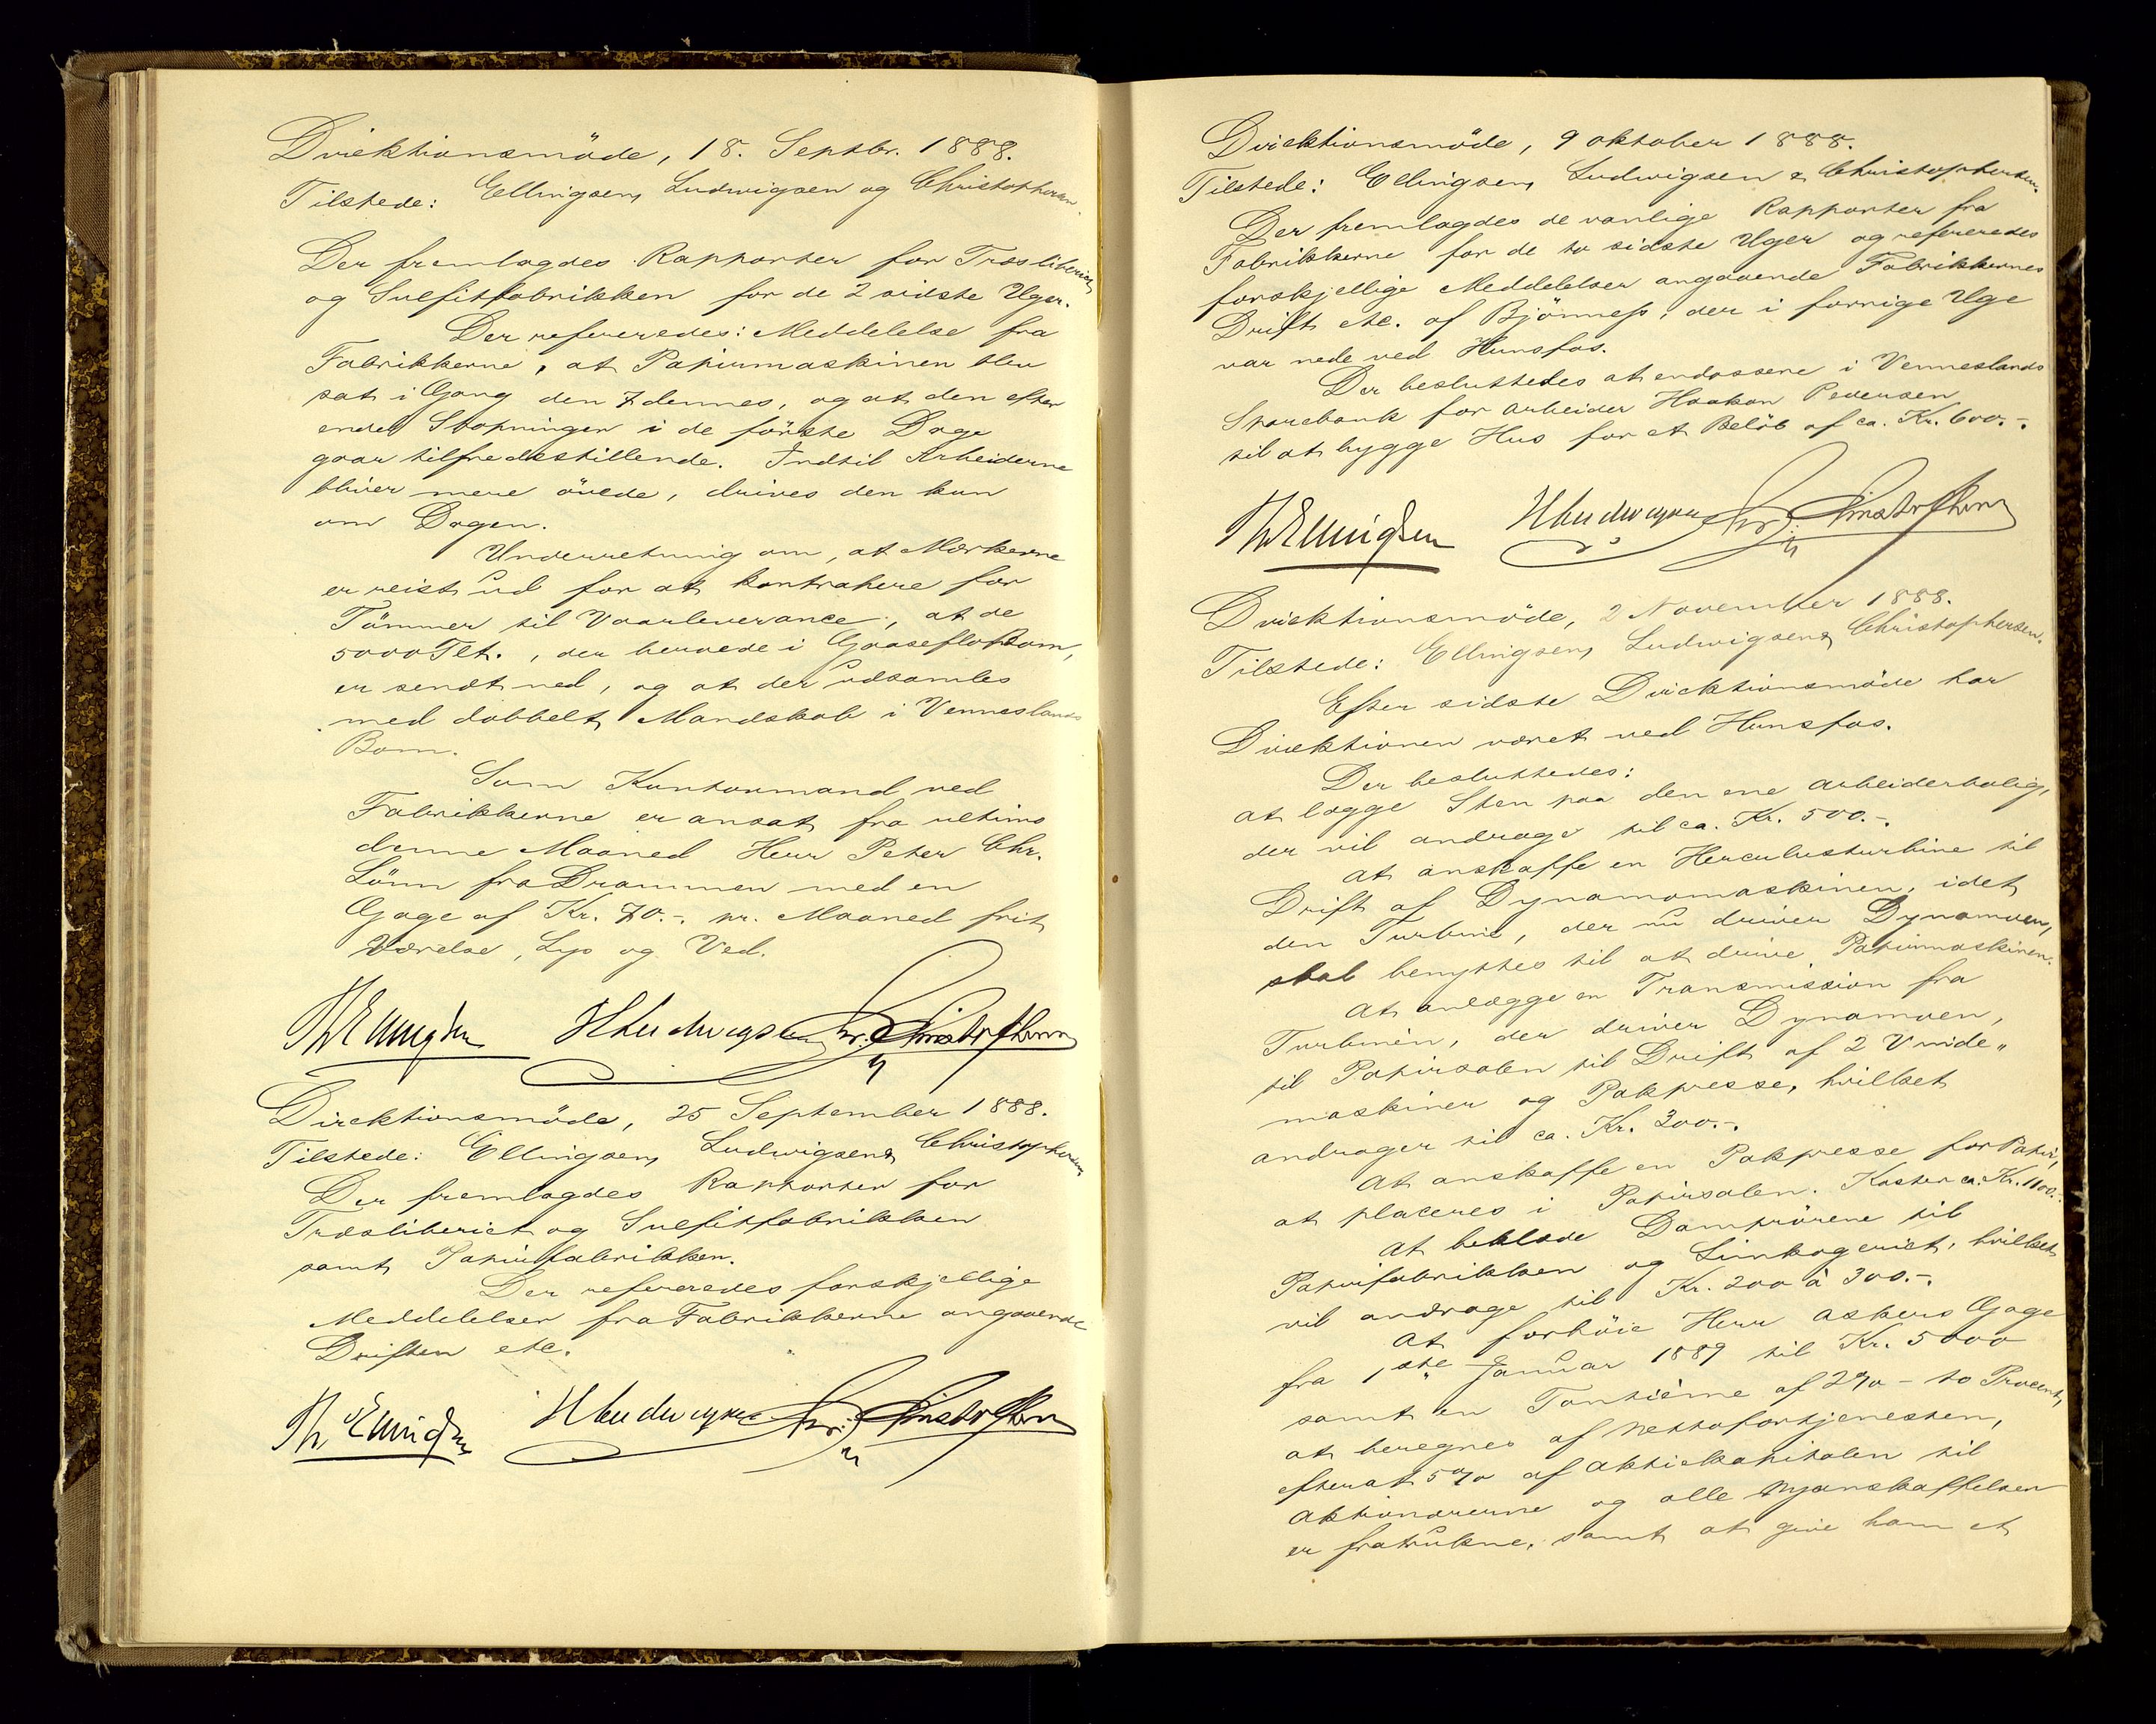 Direktionsmöde, 18. Septbr. 1888.
Tilstede: Ellingsen, Ludwigsen og Christophersen.
Der fremlagdes Rapporter for Træsliberiet
og Sulfitfabrikken for de 2 sidste Uger.
Der refereredes: Meddelelse fra
Fabrikkerne, at Papirmaskinen blev
sat i Gang den 7 dennes, og at den efter
endel Stopninger i de förste Dage
gaar tilfredsstillende. Indtil Arbeiderne
bliver mere övede, drives den kun
om Dagen.
Underretning om, at Mærkerne
er reist ud for at kontrahere for
Tömmer til Vaarleverance, at de
5000 Tlt., der beroede i Gaaseflaabom,
er sendt ned, og at der udsamles
med dobbelt Mandskab i Venneslands
Bom.
Som Kontormand ved
Fabrikkerne er ansat fra ultimo
denne Maaned Herr Peter Chr.
Lönn fra Drammen med en
Gage af Kr. 70.-. pr. Maaned frit
Værelse, Lys og Ved.
Th Ellingsen H Ludwigsen Chr. Christophersen
Direktionsmöde, 25 September 1888.
Tilstede: Ellingsen, Ludwigsen & Christophersen
Der fremlagdes Rapporter for
Træsliberiet og Sulfitfabrikken
samt Papirfabrikken.
Der refereredes forskjellige
Meddelelser fra Fabrikkerne angaaende
Driften etc.
Th. Ellingsen H Ludwigsen Chr. Christophersen
Direktionsmöde, 9 oktober 1888.
Tilstede: Ellingsen, Ludwigsen & Christophersen.
Der fremlagdes de vanlige Rapporter fra
Fabrikkerne for de to sidste Uger og refereredes
forskjellige Meddelelser angaaende Fabrikkernes
Drift etc. af Bjönness, der i forrige Uge
var nede ved Hunsfos.
Der besluttedes at endossere i Venneslands
Sparebank for arbeider Haakon Pedersen
til at bygge Hus for et Belöb af ca. Kr. 600.-.
Th Ellingsen H Ludwigsen Chr. Christophersen
Direktionsmöde, 2 November 1888.
Tilstede: Ellingsen, Ludwigsen & Christophersen.
Efter sidste Direktionsmöde har
Direktionen været ved Hunsfos.
Der besluttedes:
at lægge Sten paa den ene arbeiderbolig,
der vil andrage til ca. Kr. 500.-.
at anskaffe en Herculusturbine til
Drift af Dynamomaskinen, idet
den Turbine, der nu driver Dynamoen,
skal benyttes til at drive Papirmaskinen.
at anlægge en Transmission fra
Turbinen, der driver Dynamoen,
til Papirsalen til Drift af 2 Vinde„
maskiner og Pakpresse, hvilket
andrager til ca. Kr. 300.-.
at anskaffe en Pakpresse for Papir,
at placeres i Papirsalen. Koster ca. Kr. 1100.-.
at beklæde Damprörene til
Papirfabrikken og Limkogeriet, hvilket
vil andrage til Kr. 200 à 300.-.
at forhöie Herr Askers Gage
fra 1ste Januar 1889 til Kr. 5000
samt en Tantième af 2% - to Procent,
at beregnes af Nettofortjenesten,
efterat 5% af Aktiekapitalen til
Aktionærerne og alle Nyanskaffelser
er fratrukne, samt at give ham et